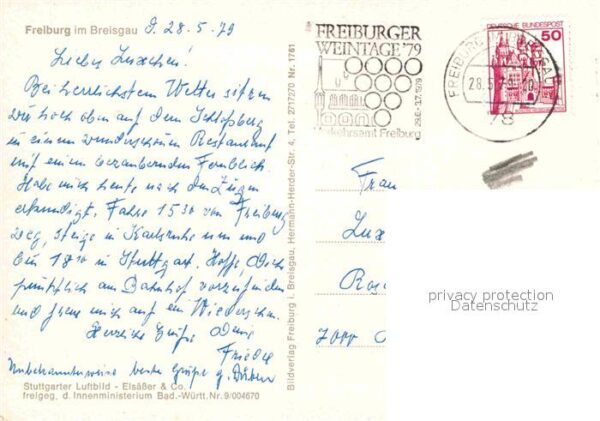 Freiburg im Breisgau
D. 28.5.79
Liebes Luxchen!
Bei herrlichstem Wetter sitzen
wir hoch oben auf dem Schloßberg
in einem wunderschönen Restaurant
mit einem bezaubernden Fernblick.
Habe mich heute nach den Zügen
erkundigt. Fahre 15 30 von Freiburg
weg, steige in Karlsruhe um und
bin 18 in Stuttgart. Hoffe, Dich
pünktlich am Bahnhof vorzufinden
und freue mich auf ein Wiedersehn.
Herzliche Grüße Deine
Friedel
Unbekannterweise beste Grüße
Stuttgarter Luftbild - Elsäßer & Co.
freigeg. d. Innenministerium Bad.-Württ. Nr. 9/004670
Bildverlag Freiburg i. Breisgau, Hermann-Herder-Str. 4, Tel. 2717270 Nr. 1761
FREIBURGER
WEINTAGE '79
29.6.-3.7.1979
Verkehrsamt Freiburg
FREIBURG
28.5.79
78
DEUTSCHE BUNDESPOST
50
Frau
Lux
Ros
7000
privacy protection
Datenschutz